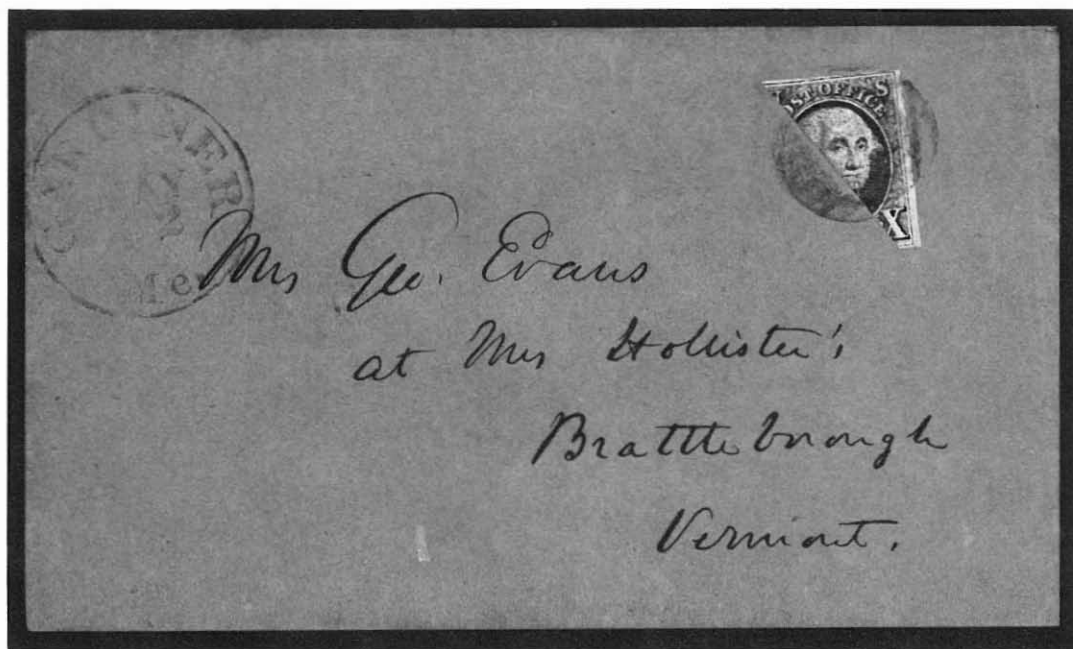 GARDINER
Me
POST OFFICE
S
X
Mrs Geo. Evans
at Mrs Hollister's
Brattleborough
Vermont.